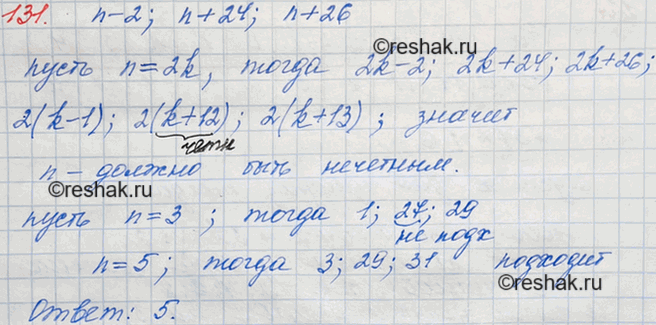 131. n-2; n+24; n+26
пусть n=2k, тогда 2k-2; 2k+24; 2k+26;
2(k-1); 2(k+12); 2(k+13); значит
четн
n - должно быть нечетным.
пусть n=3; тогда 1; 27; 29
не подх
n=5; тогда 3; 29; 31 подходит
Ответ: 5.
©reshak.ru
©reshak.ru
©reshak.ru
©reshak.ru